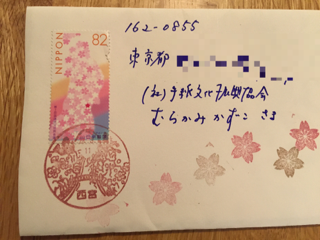 NIPPON 82
162-0855
東京都
(社)手紙文化振興協会
むらかみかずこ さま
西宮